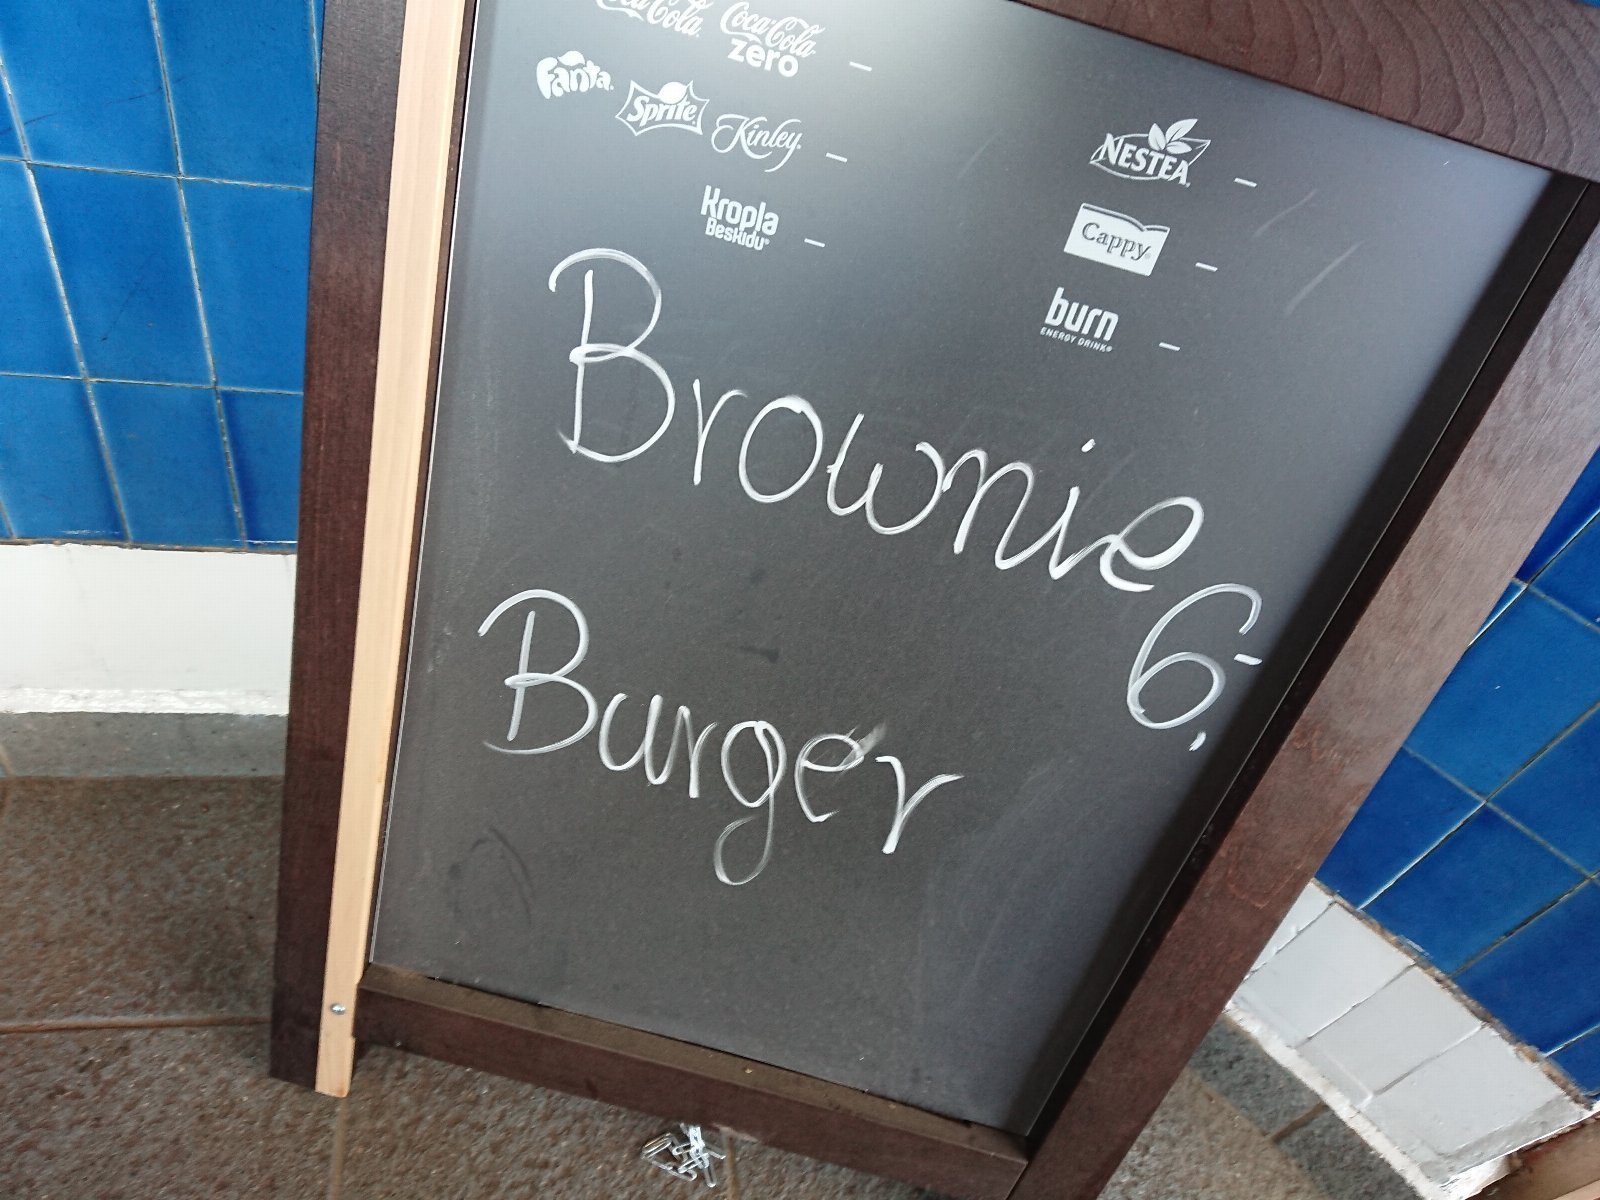 Coca-Cola Coca-Cola zero –
Fanta Sprite Kinley –
Kropla Beskidu –
NESTEA –
Cappy –
burn –
ENERGY DRINK
Brownie
6,-
Burger